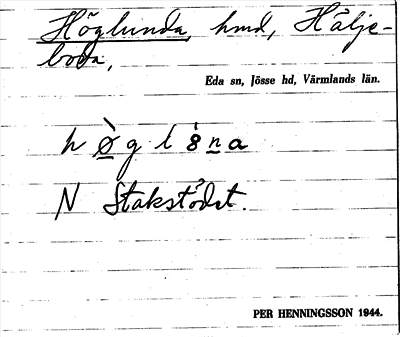 Höglunda, hmd, Hälje-
boda,
Eda sn, Jösse hd, Värmlands län.
h ø̀ g l 8̀ n a
N Stakstödet.
PER HENNINGSSON 1944.